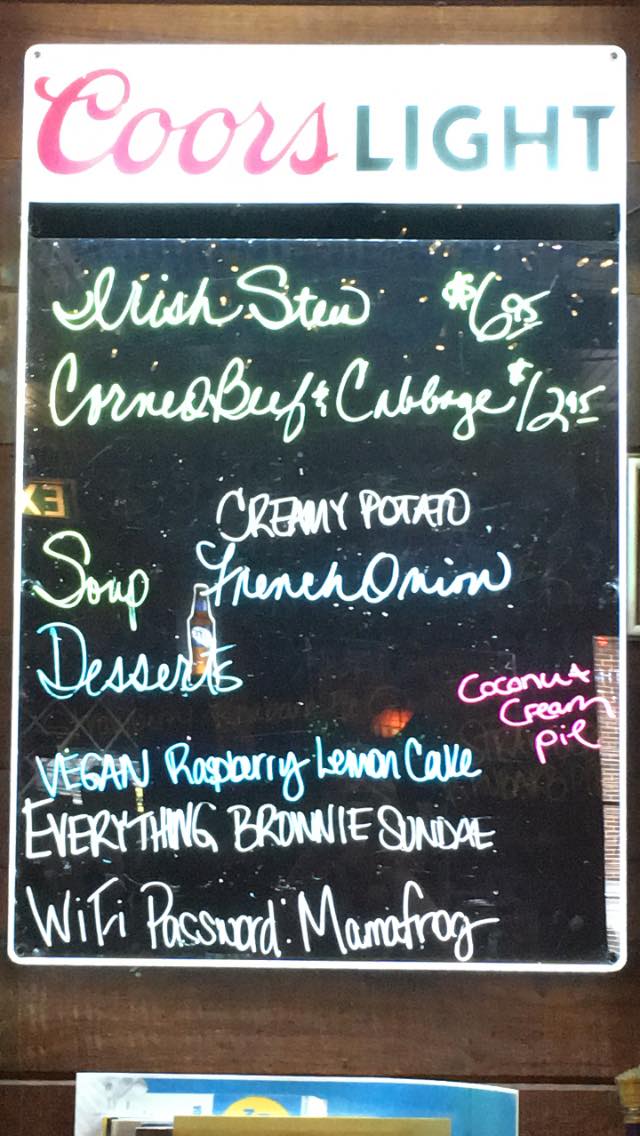 Coors LIGHT
Irish Stew $6.95
Corned Beef & Cabbage $12.95
CREAMY POTATO
Soup French Onion
Desserts
Coconut
Cream
pie
VEGAN Raspberry Lemon Cake
EVERYTHING BROWNIE SUNDAE
WiFi Password: Mamafrog